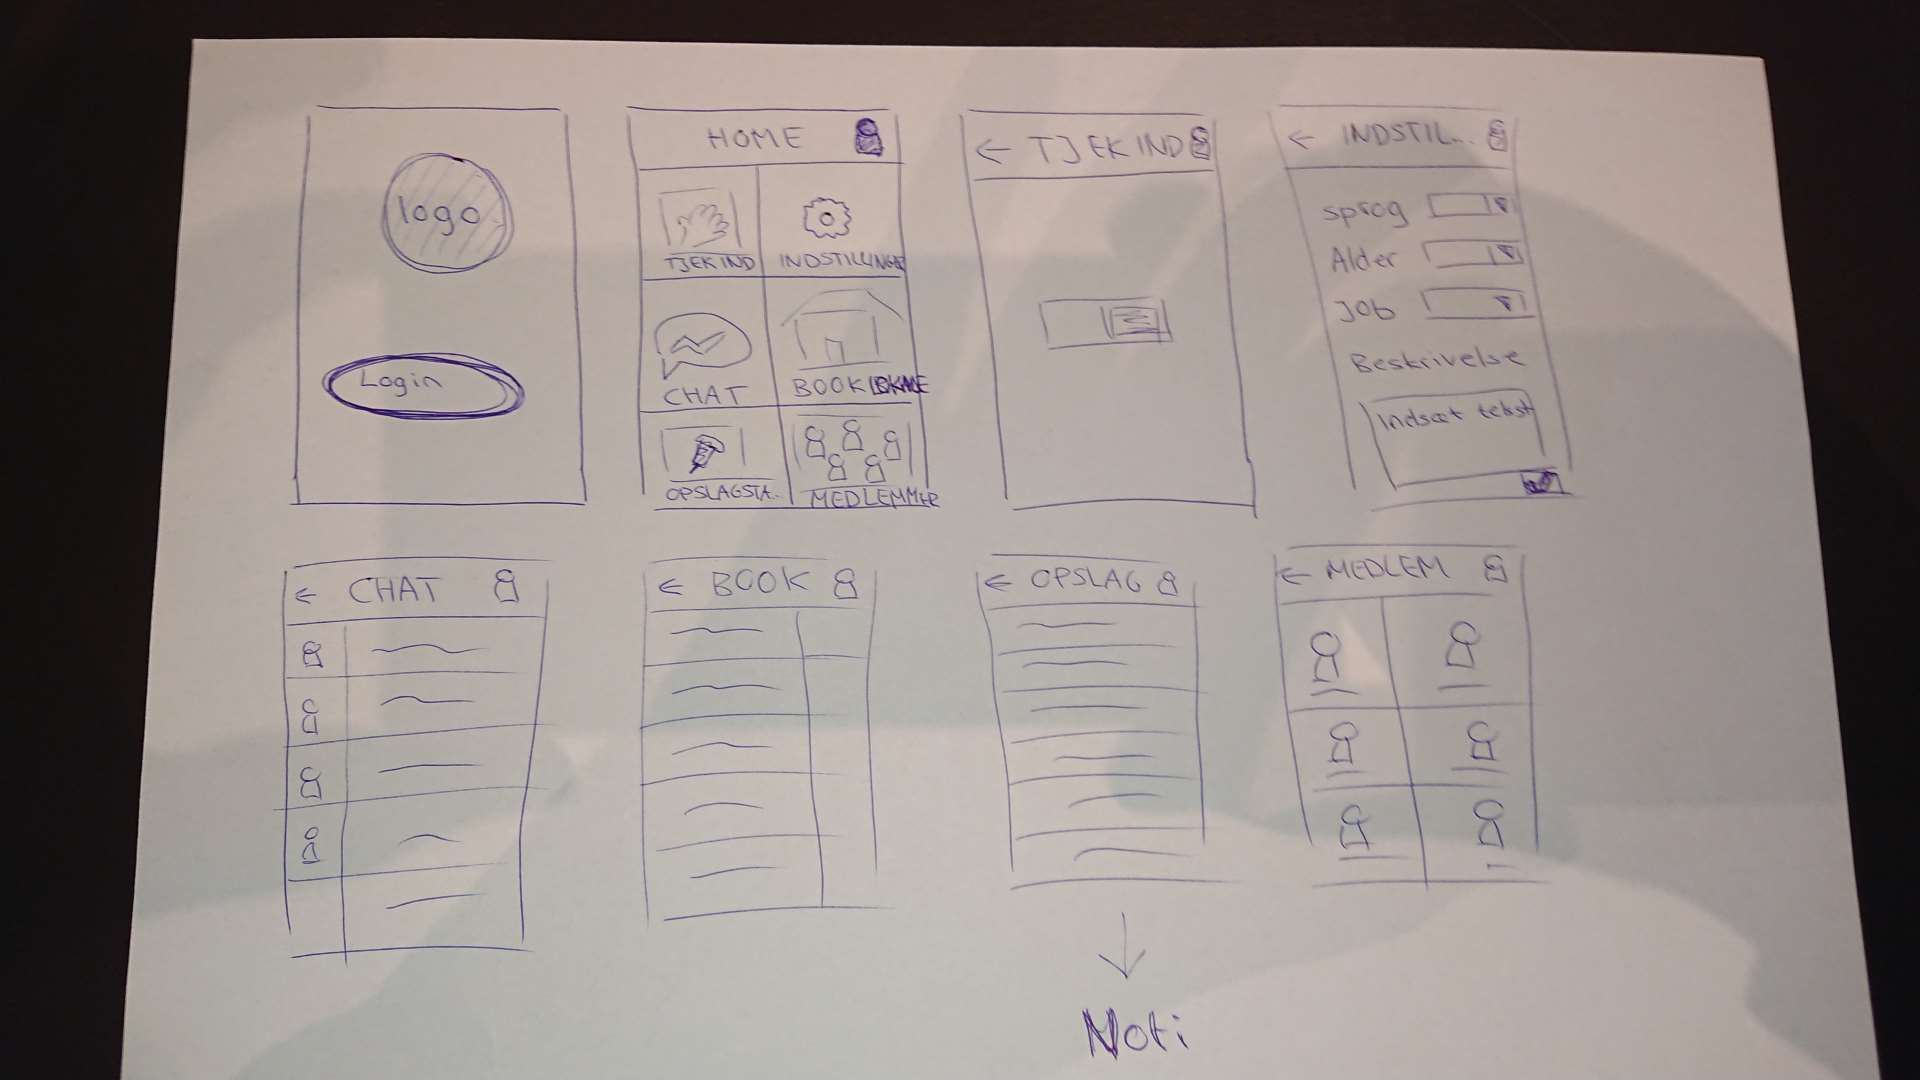 logo
Login
HOME
TJEKIND
INDSTILLINGER
CHAT
BOOK LOKALE
OPSLAGSTA..
MEDLEMMER
← TJEKIND
← INDSTIL...
sprog
Alder
Job
Beskrivelse
Indsæt tekst
← CHAT
← BOOK
← OPSLAG
← MEDLEM
Noti